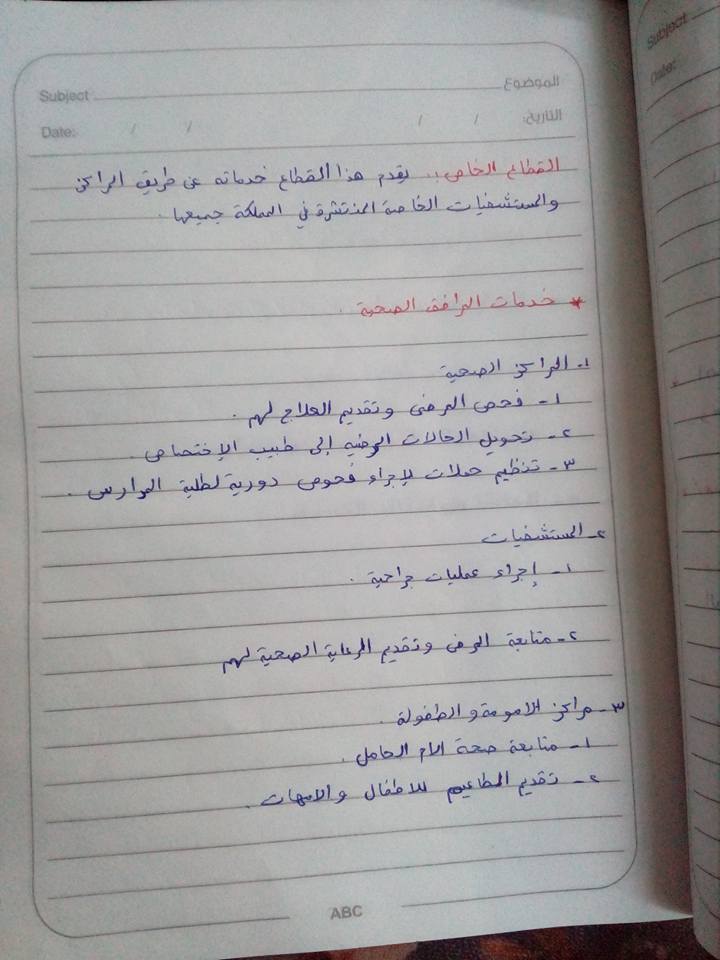 Subject الموضوع
Date: / / التاريخ: / /
القطاع الخاص :. يقدم هذا القطاع خدماته عن طريق المراكز
والمستشفيات الخاصة المنتشرة في المملكة جميعها .
* خدمات المرافق الصحية .
١- المراكز الصحية
١- فحص المرضى وتقديم العلاج لهم .
٢- تحويل الحالات المرضيه إلى طبيب الإختصاص .
٣- تنظيم حملات لإجراء فحوص دورية لطلبة المدارس .
٢- المستشفيات
١- إجراء عمليات جراحية .
٢- متابعة المرضى وتقديم الرعاية الصحية لهم
٣- مراكز الامومة والطفولة .
١- متابعة صحة الام الحامل .
٢- تقديم المطاعيم للاطفال والامهات .
ABC
Subject
Date: